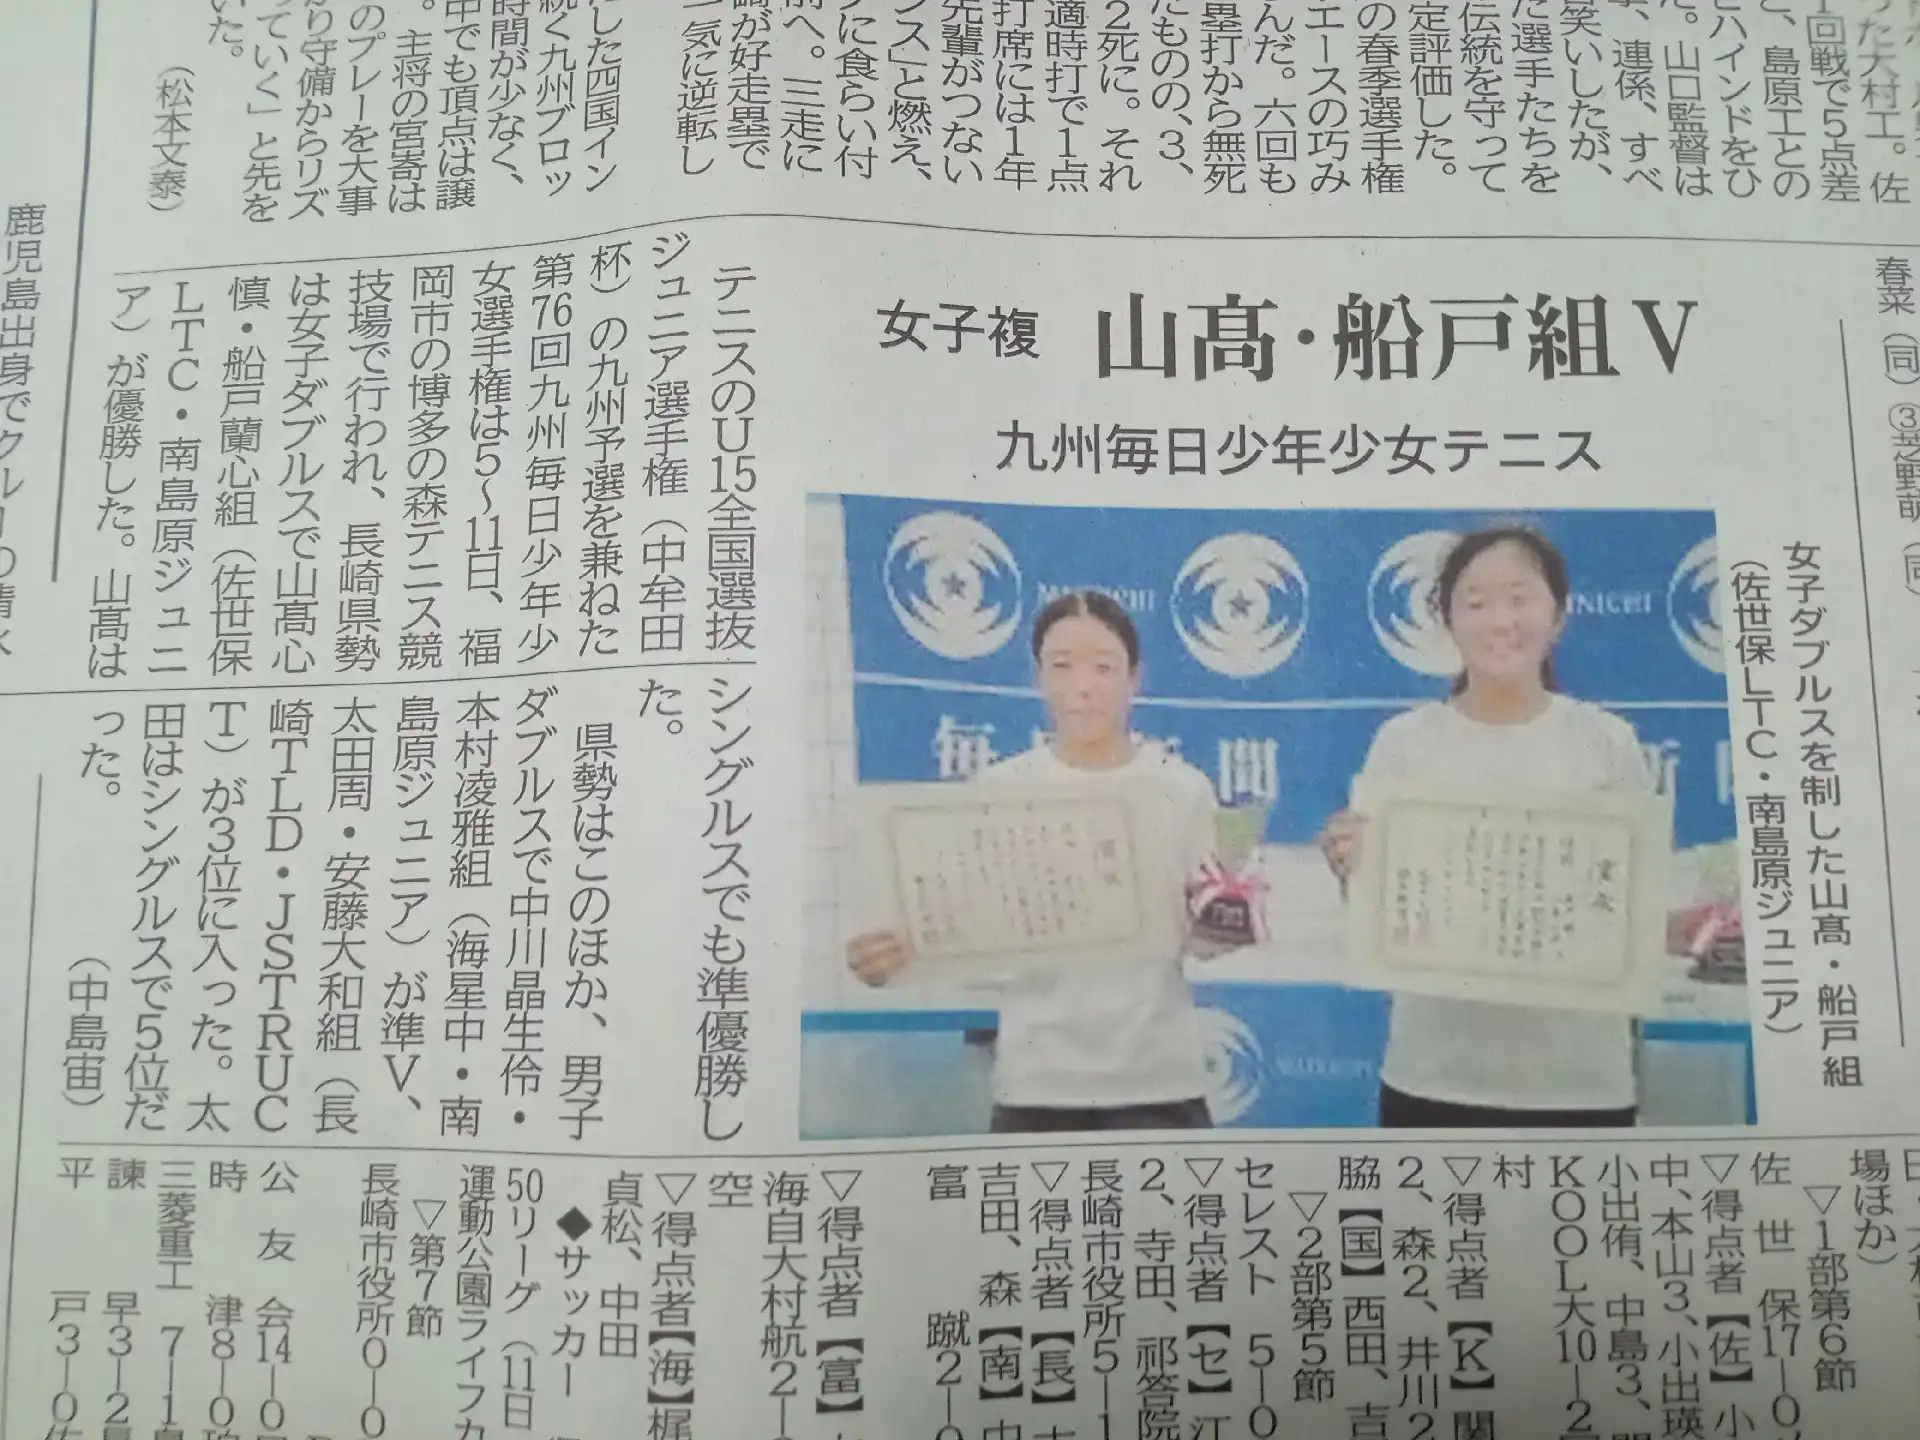 女子複 山髙・船戸組V
九州毎日少年少女テニス
女子ダブルスを制した山髙・船戸組
(佐世保LTC・南島原ジュニア)
テニスのU15全国選抜
ジュニア選手権(中牟田
杯)の九州予選を兼ねた
第76回九州毎日少年少
女選手権は5〜11日、福
岡市の博多の森テニス競
技場で行われ、長崎県勢
は女子ダブルスで山髙心
慎・船戸蘭心組(佐世保
LTC・南島原ジュニ
ア)が優勝した。山髙は
シングルスでも準優勝し
た。
県勢はこのほか、男子
ダブルスで中川晶生伶・
本村凌雅組(海星中・南
島原ジュニア)が準V、
太田周・安藤大和組(長
崎TLD・JSTRUC
T)が3位に入った。太
田はシングルスで5位だ
った。
(中島宙)
った大村工。佐
1回戦で5点差
、島原工との
ハインドをひ
た。山口監督は
、連係、すべ
笑いしたが、
た選手たちを
伝統を守って
定評価した。
の春季選手権
エースの巧み
んだ。六回も
塁打から無死
たものの、3、
2死に。それ
適時打で1点
打席には1年
先輩がつない
ンス」と燃え、
に食らい付
前へ。三走に
が好走塁で
一気に逆転し
した四国イン
続く九州ブロッ
時間が少なく、
中でも頂点は譲
。主将の宮寄は
のプレーを大事
り守備からリズ
っていく」と先を
いた。
(松本文泰)
鹿児島出身でクルーの清水
春菜(同)③芝野萌(同)
毎日新聞
MAINICHI
賞状
場ほか)
▽1部第6節
佐世保17―0
▽得点者【佐】小
中、本山3、小出瑛
小出侑、中島3、
KOOL大10―2
村
▽得点者【K】関
2、森2、井川2
脇【国】西田、吉
▽2部第5節
セレスト 5―0
▽得点者【セ】江
2、寺田、祁答院
長崎市役所5―1
▽得点者【長】
吉田、森【南】中
富 蹴2―0
▽得点者【富】
海自大村航2―
空
▽得点者【海】梶
貞松、中田
◆サッカー
50リーグ(11日
運動公園ライフカ
▽第7節
長崎市役所0―0
公友会14―0
時 津8―0
三菱重工 7―1
諫 早3―2
平 戸3―0